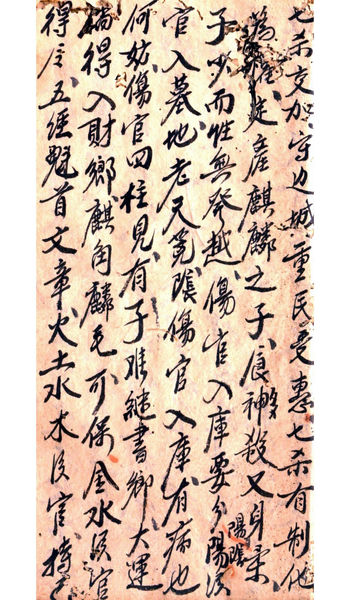 七杀交加守边城重民受惠七杀有制化
為權定産麒麟之子食神多殺又身柔
子少而性無發越傷官入庫要分陽陰陽
官入墓地老尺陰傷官入庫有病也
何妨傷官四柱見有子难繼書鄉大運
倘得入財鄉麒角麟毛可保金水伤官
得令五經魁首文章火土水木伤官